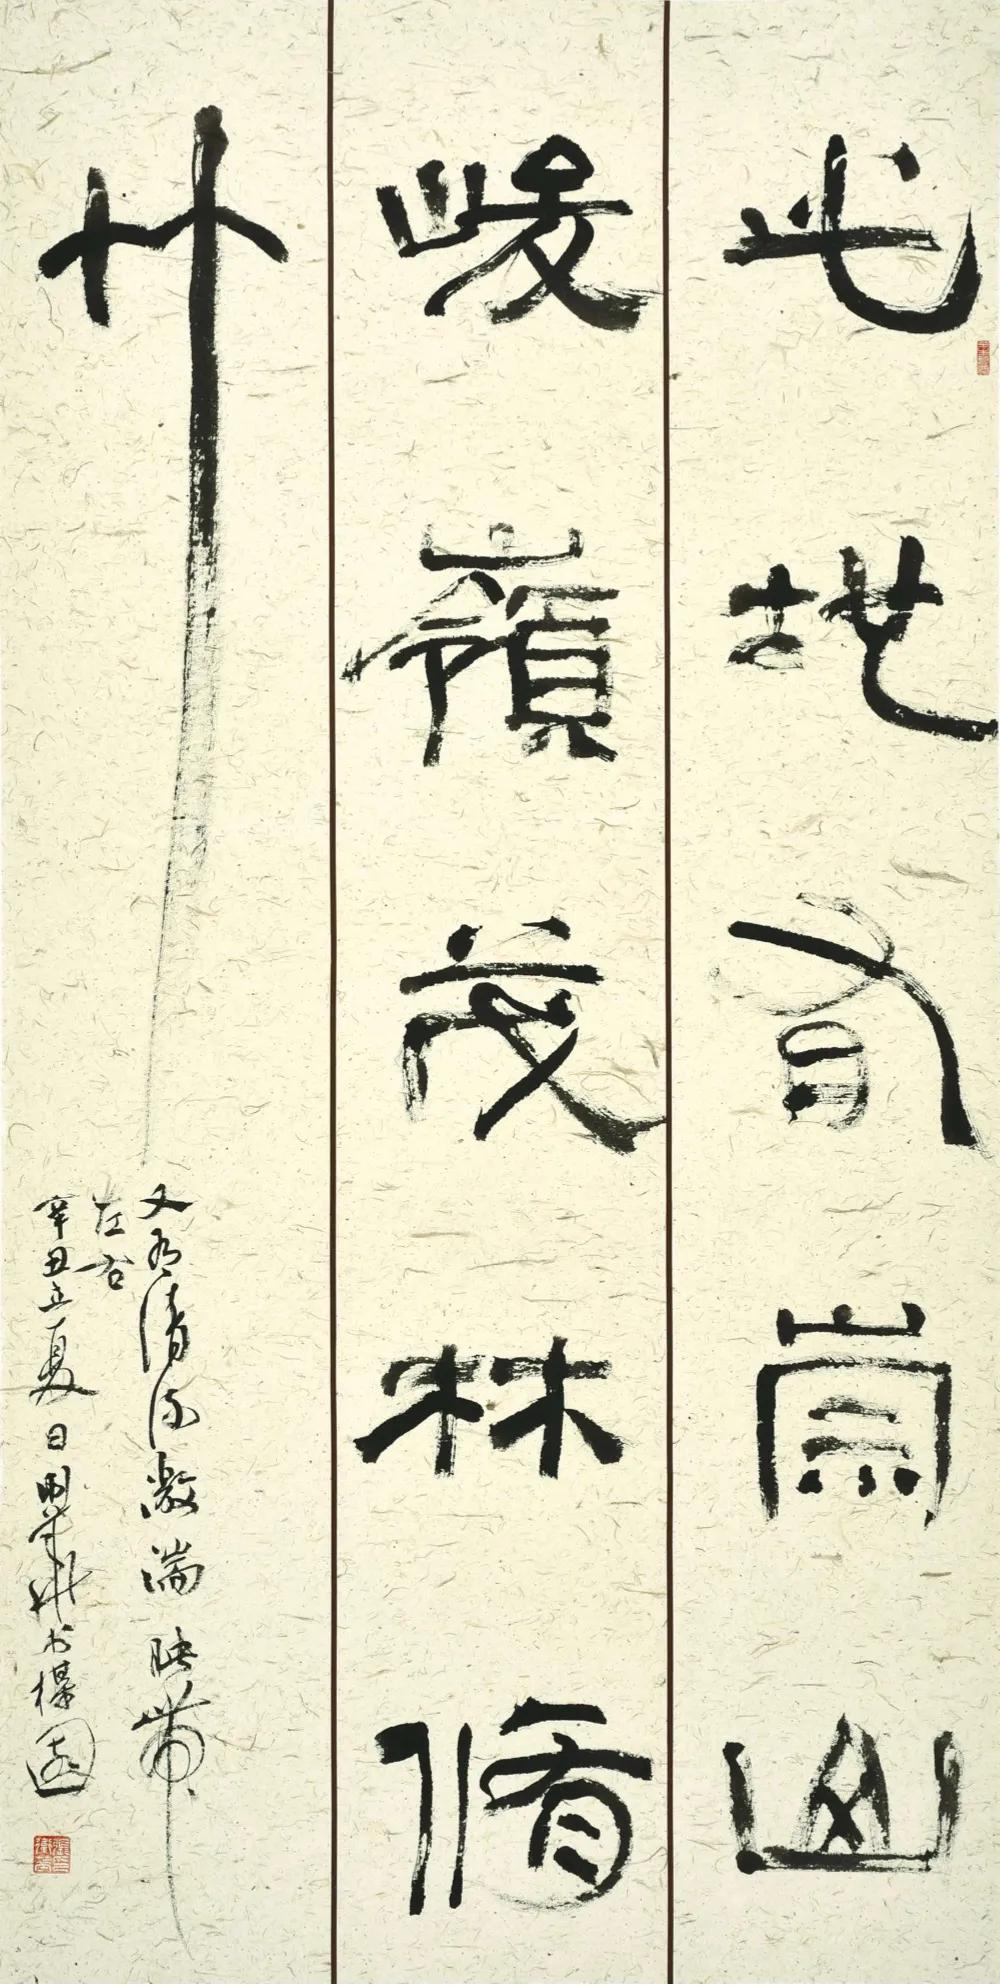 此地有崇山
峻嶺茂林脩
竹
又有清流激湍映帶
左右
辛丑立夏日
書
園